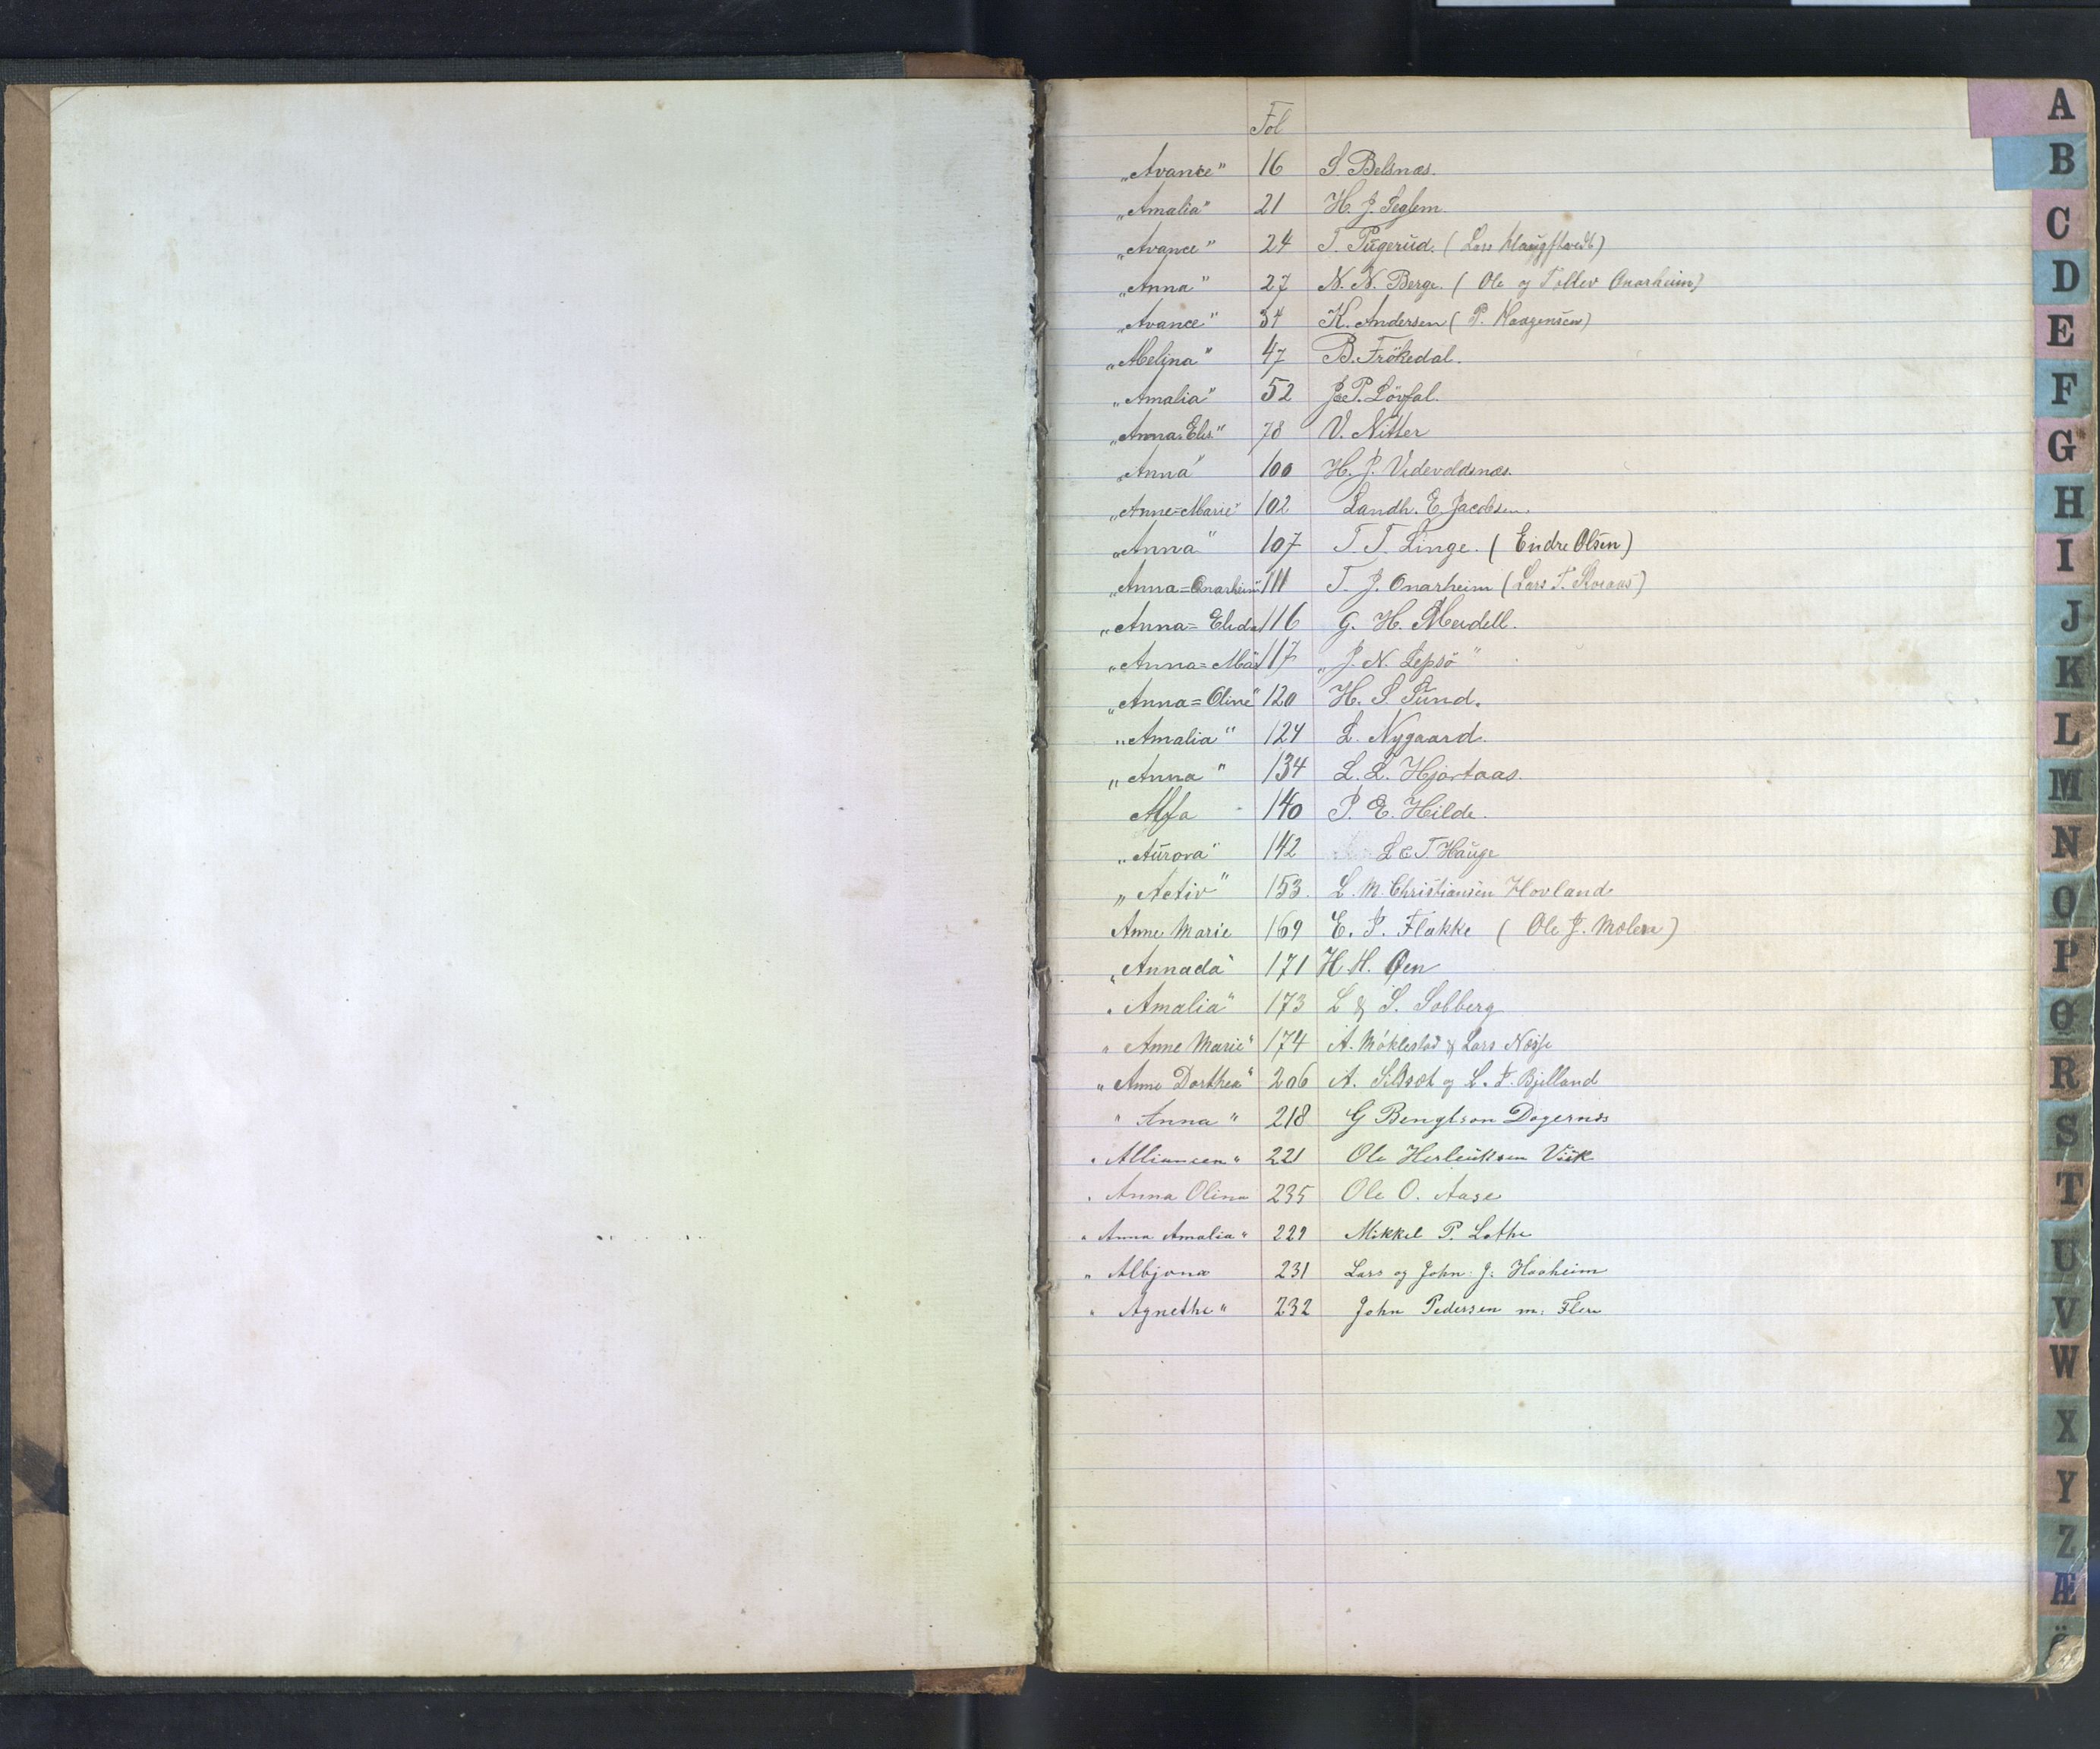 Fol
„Avance" 16 S Belsnæs.
„Amalia" 21 H. J. Seglem
„Avance" 24 T. Pügerüd. (Lars
„Anna" 27 N. N. Berge. (Ole og Onarheim)
„Avance" 34 K. Andersen (P. Haagensen)
47 B. Frökedal.
„Amalia" 52
78 V. Nitter
„Anna" 100 H. J.
„Anne=Marie" 102 Landh. E. Jacobsen.
„Anna" 107 T. T. Linge. (Endre Olsen)
„Anna=Onarheim" 111 T. J. Onarheim (Lars T.
„Anna= 116 G. H.
117 „J. N. Lepsö"
„Anna=Oline" 120 H. S. Sünd.
„Amalia" 124 L. Nygaard.
„Anna" 134 L. L. Hjortaas.
Alfa 140 P. E. Hilde.
„Aürora" 142 Haüge
„Activ" 153. L. M. Christiansen Hovland
Anne Marie 169 E. P. Flakke (Ole J. Molen)
„Annada" 171 H. H. Øen
„Amalia" 173 L & S. Solberg
„Anne Marie" 174 A. Möklestad & Lars
„Anne Dorthea" 206 A. og L. J. Bjelland
„Anna" 218 G Bengtson Dogernes
„Alliancen" 221 Ole Herleiksen Viik
„Anna Olina 235 Ole O. Aase
„Anna Amalia" 229 Mikkel P. Lothe
„Albjona 231 Lars og John J: Haaheim
„Agnethe" 232 John Pedersen m: Flere
A
B
C
D
E
F
G
H
I
J
K
L
M
N
O
P
Q
R
S
T
U
V
W
X
Y
Z
Æ